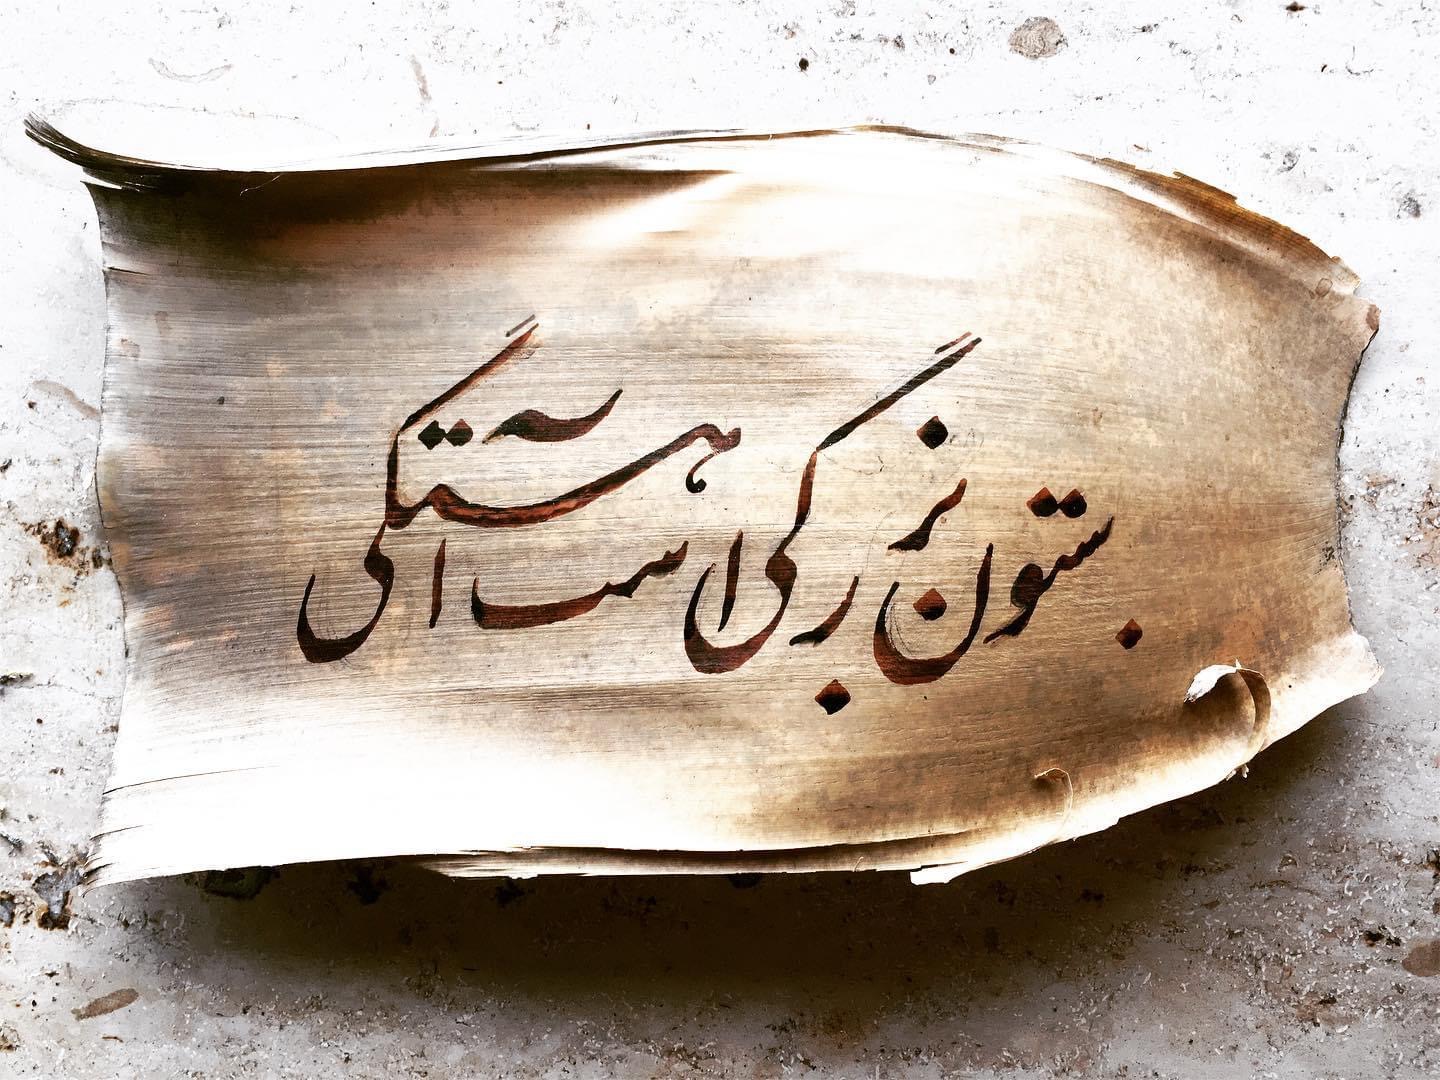 ستون بزرگی است آهستگی